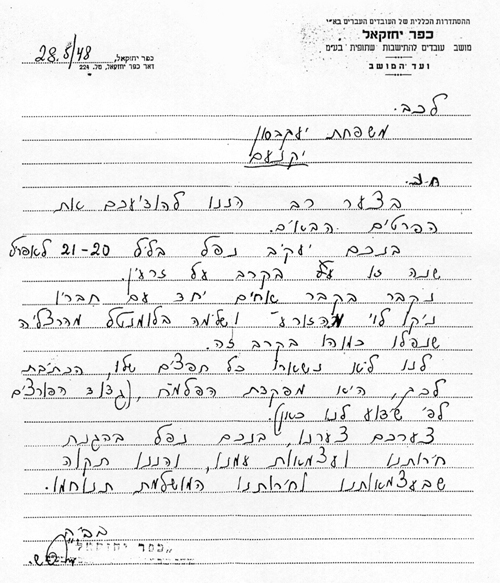 ההסתדרות הכללית של העובדים העברים בא"י
כפר יחזקאל
מושב עובדים להתישבות שתופית בע"מ
ועד המושב
כפר יחזקאל, 28.5/48
דאר כפר יחזקאל, טל. 224
לכב.
משפחת יעקבסון
יקנעם
ח.נ.
בצער רב הננו להודיעכם את
הפרטים הבאים.
בנכם יעקב נפל בליל 20-21 לאפריל
שנה זו בקרב על זרעין.
נקבר בקבר אחים יחד עם חבריו
ניקו לוי מהזורע ושלמה בלומנטל מהרצליה
שנפלו כמוהו בקרב זה.
לנו לא נשארו כל חפצים שלו, הכתובת
לכך, היא מפקדת הפלמ"ח, גדוד הפורצים
לפי שידוע לנו כאן.
צערכם צערנו, בנכם נפל בהגנת
חירותנו ועצמאות עמנו, והננו תקוה
שבעצמאותנו וחירותנו המושלמת תנוחמו.
בב"ח
"כפר יחזקאל"